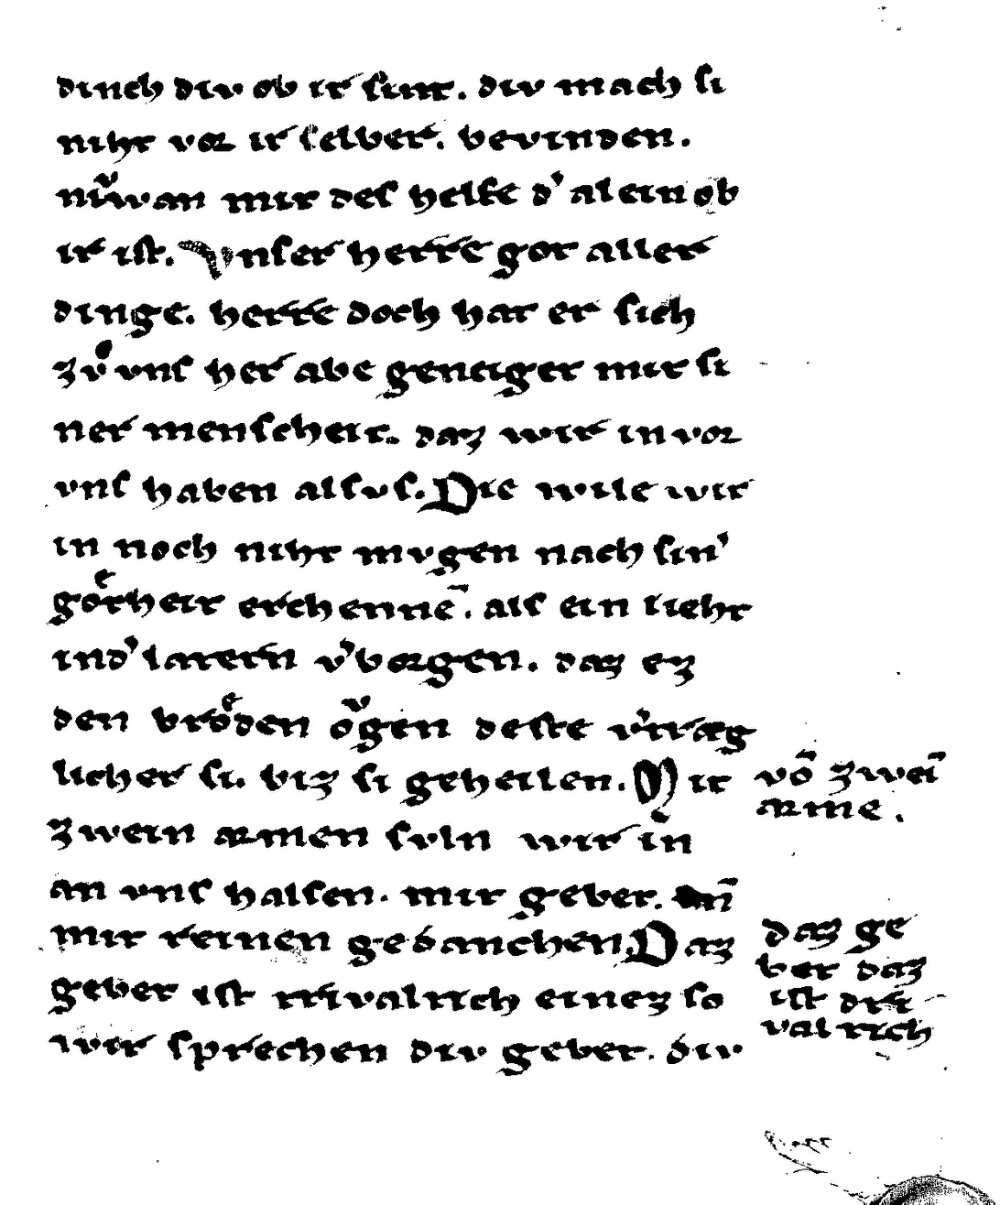 dinch div ob ir sint. div mach si
niht vor ir selber. bevinden.
nův̂wan mir des helfe d' alein ob
ir ist. Vnser herre got aller
dinge. herre doch hat er sich
zů vns her abe geneiget mit si
ner menscheit. daz wir in vor
vns haben alsvs. Die wile wir
in noch niht mvgen nach sin'
gotͤheit erchennē. als ein lieht
in d' latern v'borgen. daz ez
den broͤden oͮgen deste v'træg
licher si. biz si geheilen. Mit
zwein armen svln wir in
an vns halsen. mit gebet. vn̄
mit reinen gedanchen. Daz
gebet ist trivaltich einez so
wir sprechen div gebet. div
võ zwei᷑n
arme.
daz ge
bet daz
ist dri
valtich